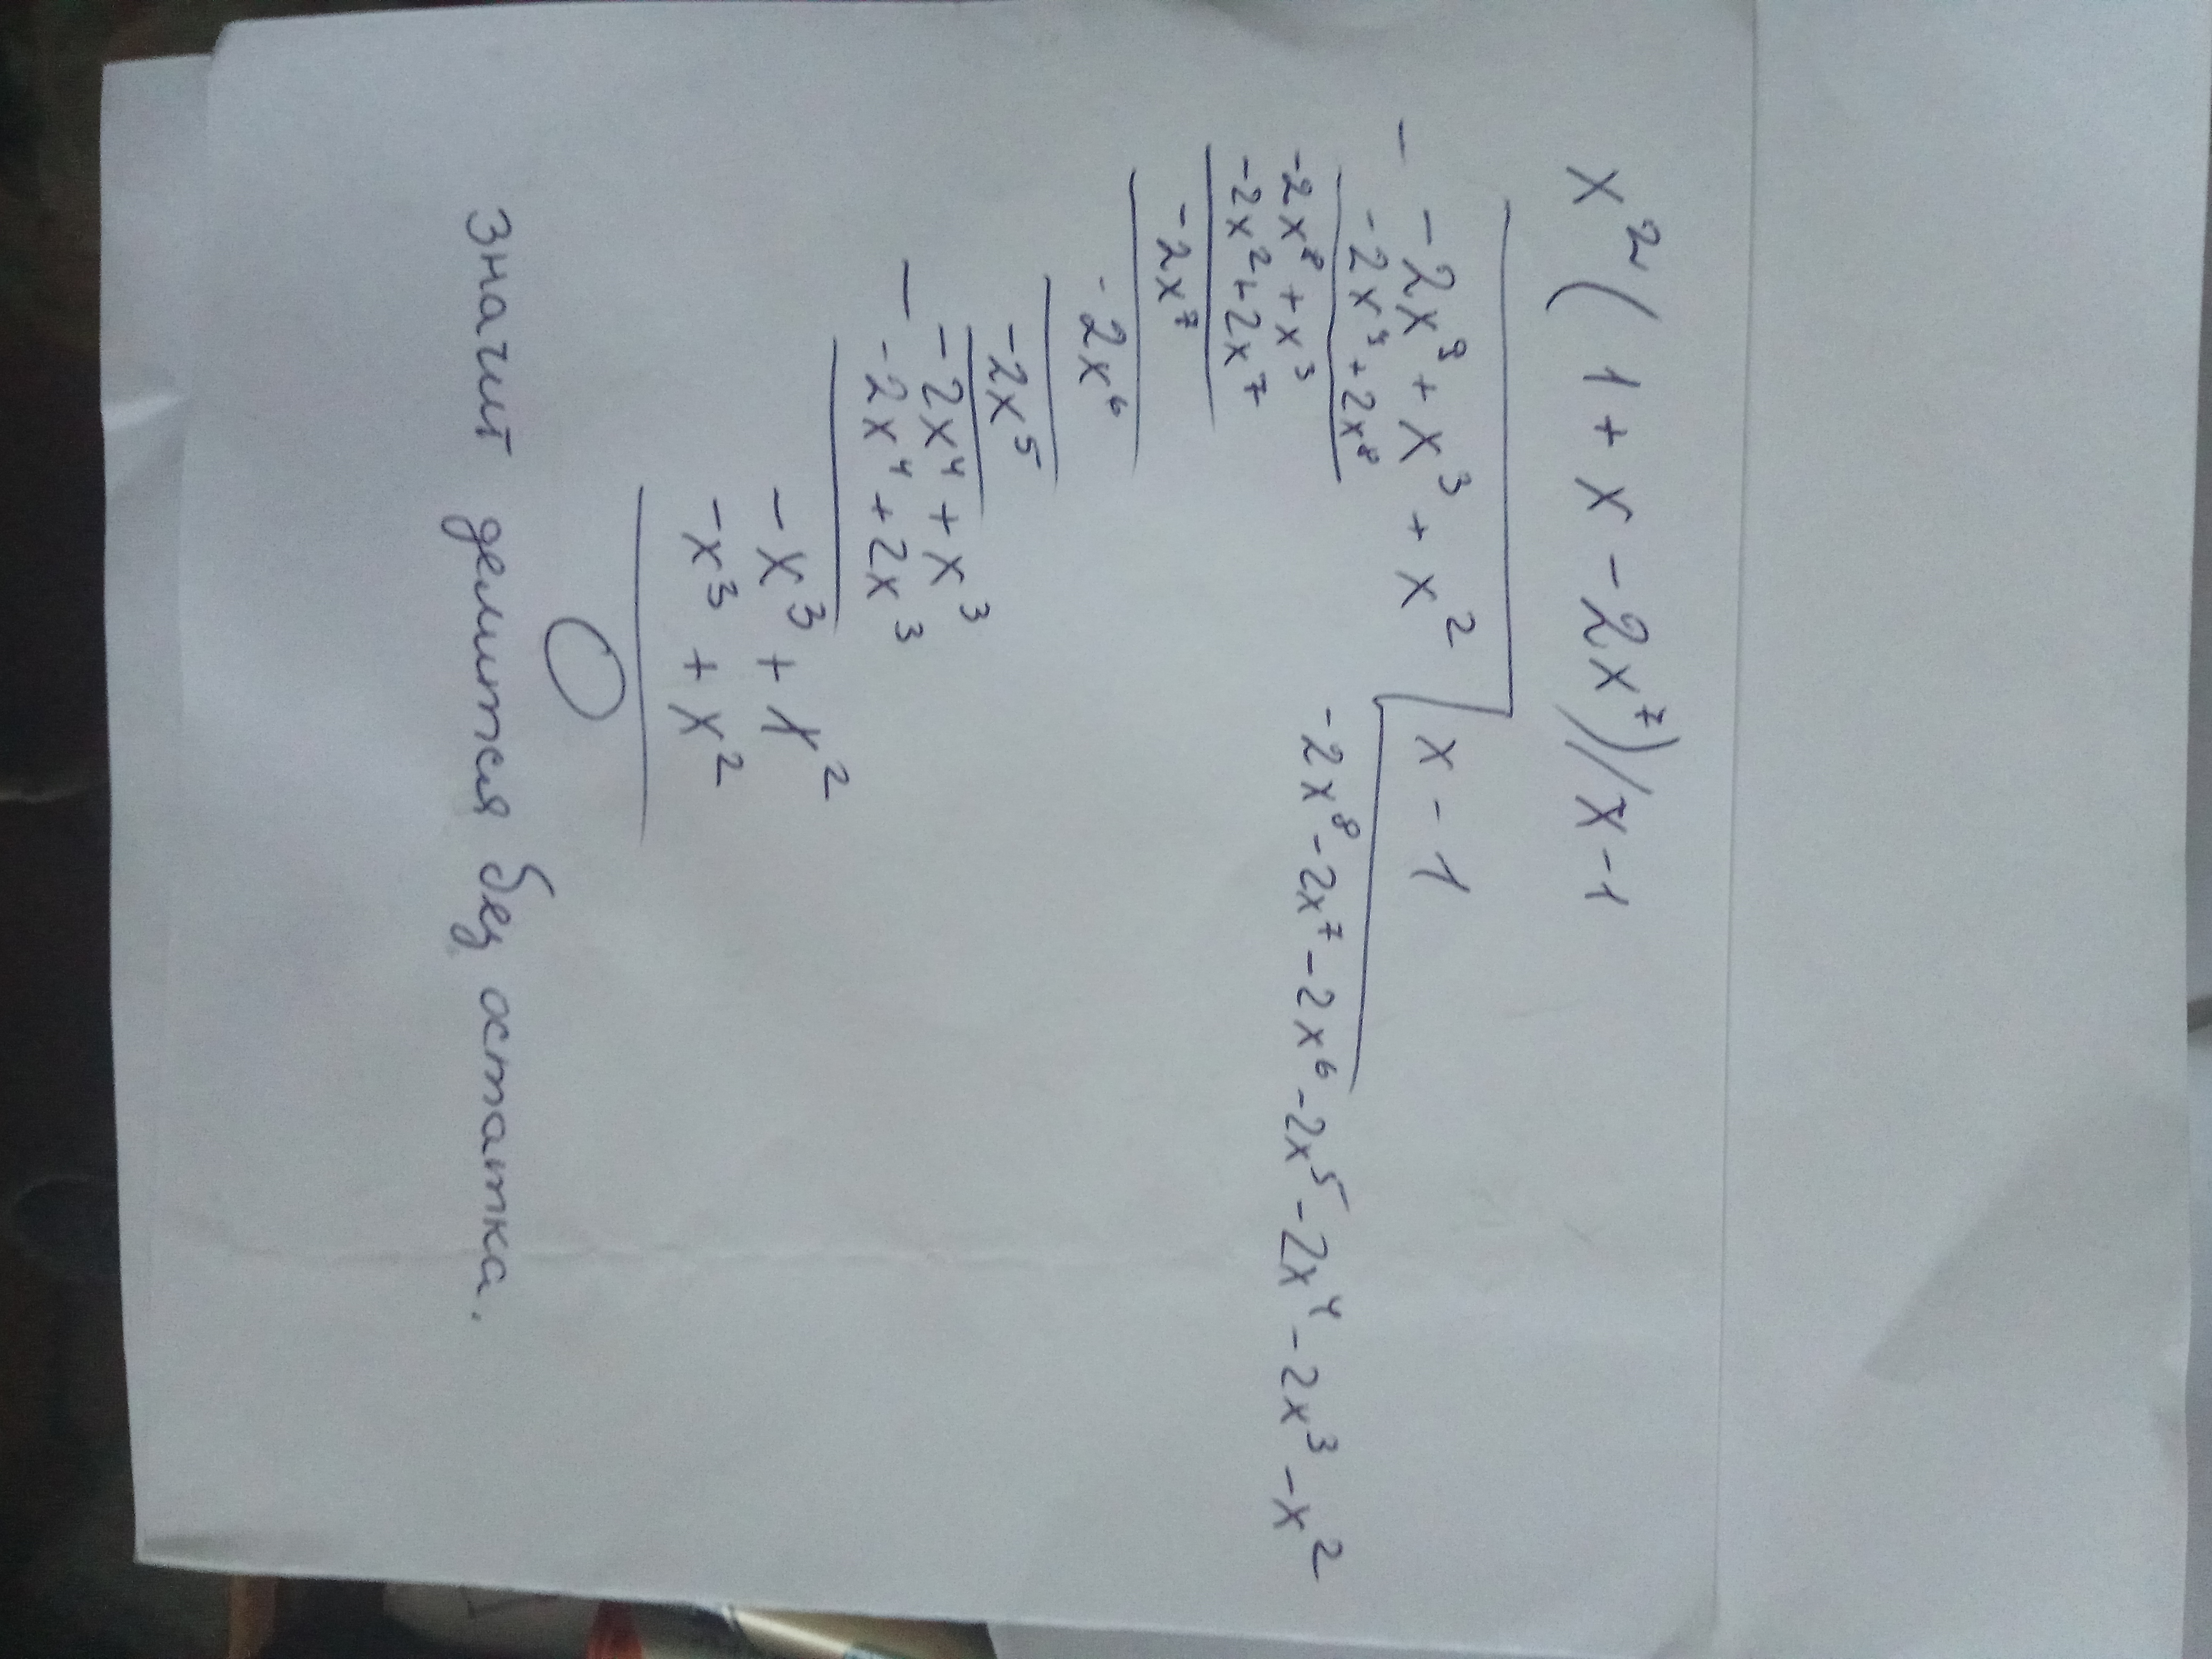 x²(1+x-2x⁷)/x-1
- -2x⁹+x³+x² x-1
-2x⁹+2x⁸ -2x⁸-2x⁷-2x⁶-2x⁵-2x⁴-2x³-x²
-2x⁸+x³
-2x²+2x⁷
-2x⁷
-2x⁶
-2x⁵
- -2x⁴+x³
-2x⁴+2x³
-x³+x²
-x³+x²
0
значит делится без остатка.